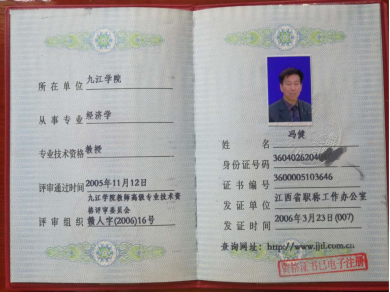 所在单位 九江学院
从事专业 经济学
专业技术资格 教授
评审通过时间 2005年11月12日
九江学院教师高级专业技术资
格评审委员会
评审组织 赣人字(2006)16号
姓名 冯健
身份证号码 3604026204
证书编号 3600005103646
发证单位 江西省职称工作办公室
发证时间 2006年3月23日(007)
查询网址:http://www.jjtl.com.cn
资格证书已电子注册